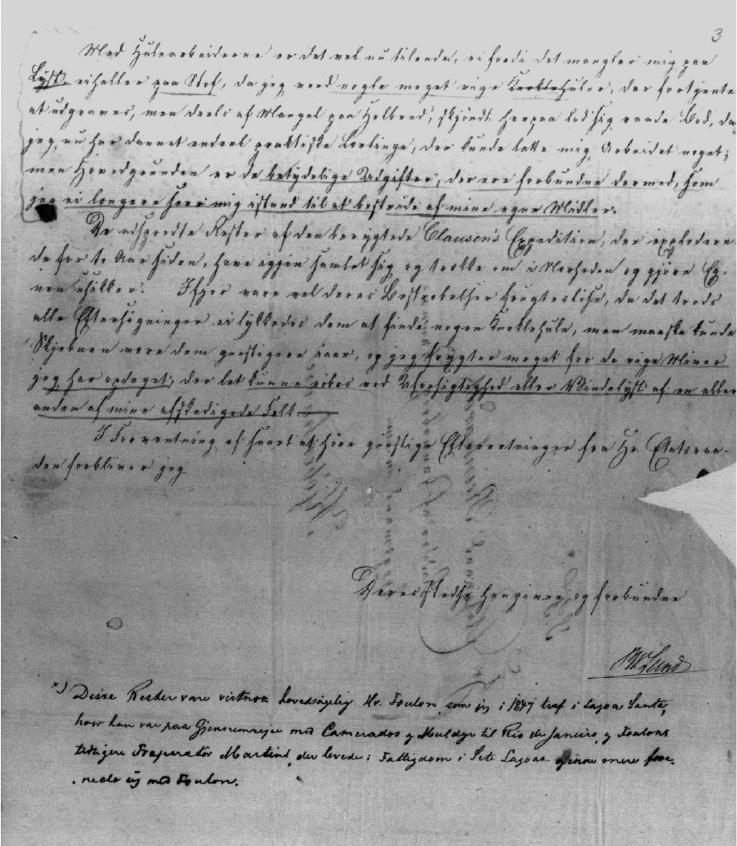 3
Med Hulearbeiderne er det vel nu tilende, ei fordi det mangler mig paa
Lyst, eiheller paa Stof, da jeg veed nogle meget rige Knokkehuler, der fortjente
at udgraves, men deels af Mangel paa Helbred, skjöndt herpaa lod sig raade Bod, da
jeg nu har dannet endeel praktiske Lærlinge, der kunde lette mig Arbeidet noget;
men Hovedgrunden er de betydelige Udgifter, der ere forbundne dermed, som
jeg ei længere seer mig istand til at bestride af mine egne Midler.
De adspredte Rester af den berygtede Clausens Expedition, der explodere-
de for to Aar siden, have igjen samlet sig og trække om i Nærheden og gjöre Ex-
. Ifjor vare vel deres Bestræbelser frugteslöse, da det trods
alle Eftersögninger ei lykkedes dem at finde nogen Knokkehule, men maaske kunde
Skjebnen være dem gunstigere iaar, og jeg frygter meget for de rige Miner
jeg har opdaget, der let kunne röbes ved Uforsigtighed eller Vindelyst af en eller
anden af mine afskedigede Folk.
I Forventning af snart at höre gunstige Efterretninger fra Hr. Etatsraa-
den forbliver jeg
Deres stedse hengivne og forbundne
PWLund
*) Disse Rester vare vistnok hovedsagelig Hr. Foulon, som jeg i 1847 traf i Lagoa Santa,
hvor han var paa Gjennemreise med Camerados og Muldyr til Rio de Janeiro, og Foulons
tidligere Præparatör Martins, der levede i Fattigdom i Sete Lagoas og inou mere fore-
nede sig med Foulon.